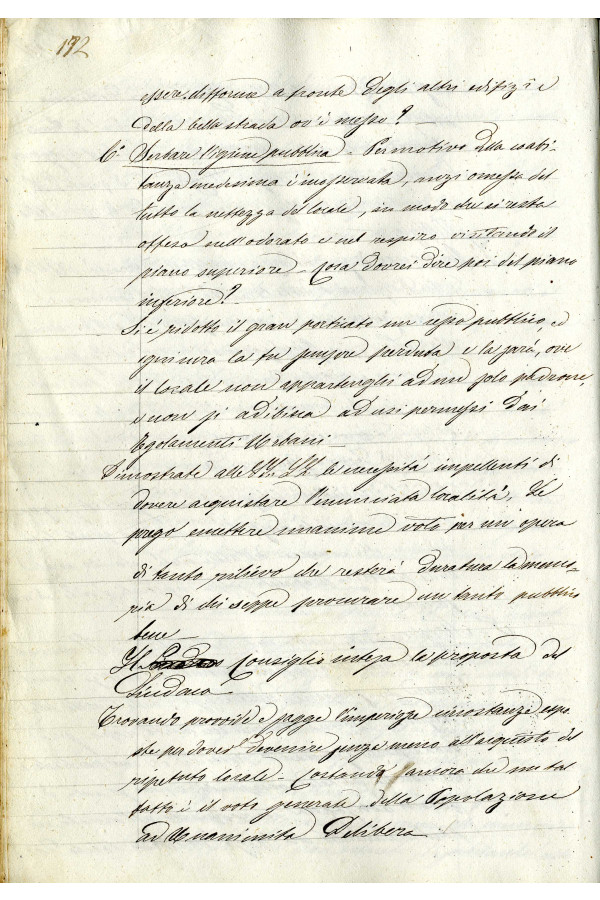 192
essere differenze a fronte degli altri edifizî e
della bella strada ov'è messo?
6.° Serbare l'igiene pubblica - Per motivo della coabi-
tanza medesima è inosservata, anzi omessa del
tutto la nettezza del locale, in modo che si resta
offeso nell'odorato e nel respiro visitando il
piano superiore - Cosa dovrei dire poi del piano
inferiore? -
Si è ridotto il gran porticato un cesso pubblico, ed
igiene la fu sempre perduta e la sarà, ove
il locale non appartenghi ad un solo padrone,
e non si adibisca ad usi permessi dai
Regolamenti Urbani -
Dimostrate alle SS. LL. le necessità impellenti di
dovere acquistare l'enunciata località, Le
prego emettere unanime voto per un'opera
di tanto rilievo che resterà duratura la memo-
ria di chi seppe procurare un tanto pubblico
bene -
Il Consiglio intesa la proposta del
Sindaco
Trovando provvide e sagge l'imperiose circostanze espo-
ste per dover devenire senza meno all'acquisto del
ripetuto locale - Costando ancora che un tal
fatto è il voto generale della Popolazione
ad Unanimità Delibera